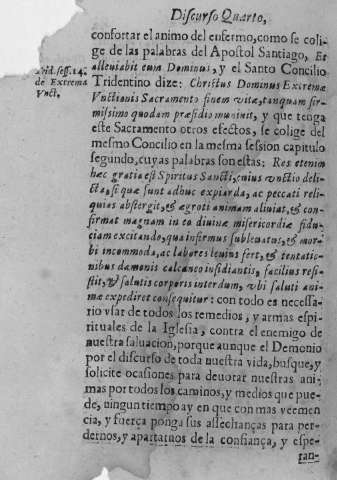 Discurso Quarto,
confortar el animo del enfermo, como se coli-
ge de las palabras del Apostol Santiago, Et
alleuiabit eum Dominus, y el Santo Concilio
Trid. sess. 14.
de Extrema
Vnct.
Tridentino dize: Christus Dominus Extremæ
Vnctionis Sacramento finem vitæ, tanquam fir-
missimo quodam præsidio muniuit, y que tenga
este Sacramento otros efectos, se colige del
mesmo Concilio en la mesma session capitulo
segundo, cuyas palabras son estas: Res etenim
hæc gratia est Spiritus Sancti, cuius vnctio deli-
cta, si quæ sunt adhuc expianda, ac peccati reli-
quias abstergit, & ægroti animam aliuiat, & con-
firmat magnam in eo diuinæ misericordiæ fidu-
ciam excitando, qua infirmus subleuatus, & mor-
bi incommoda, ac labores leuius fert, & tentatio-
nibus dæmonis calcaneo insidiantis, facilius resi-
stit, & salutis corporis interdum, vbi saluti ani-
mæ expediret consequitur: con todo es necessa-
rio vsar de todos los remedios, y armas espi-
rituales de la Iglesia, contra el enemigo de
nuestra saluacion, porque aunque el Demonio
por el discurso de toda nuestra vida, busque, y
solicite ocasiones para deuorar nuestras ani-
mas por todos los caminos, y medios que pue-
de, ningun tiempo ay en que con mas veemen
cia, y fuerça ponga sus assechanças para per-
dernos, y apartarnos de la confiança, y espe-
ran-